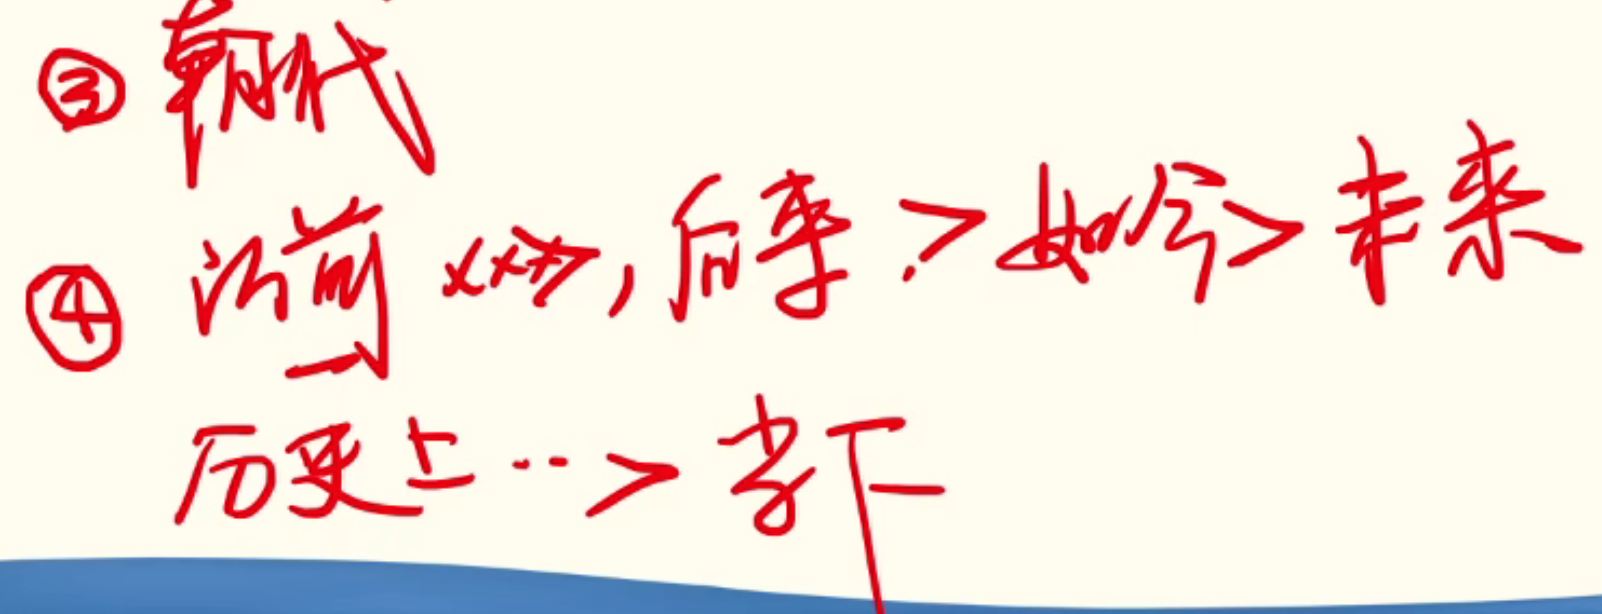 ③ 朝代
④ 以前 xxx, 后来 > 如今 > 未来
历史上 … > 当下